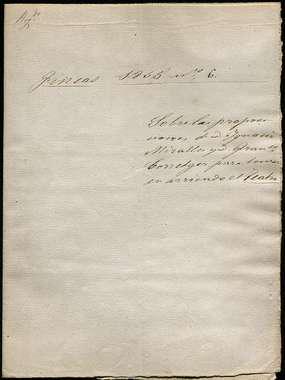 Fincas 1855 nº 6.
Sobre las proposi
ciones de d. Ignacio
Miralles y d. Franco
para tomar
en arriendo el Teatro